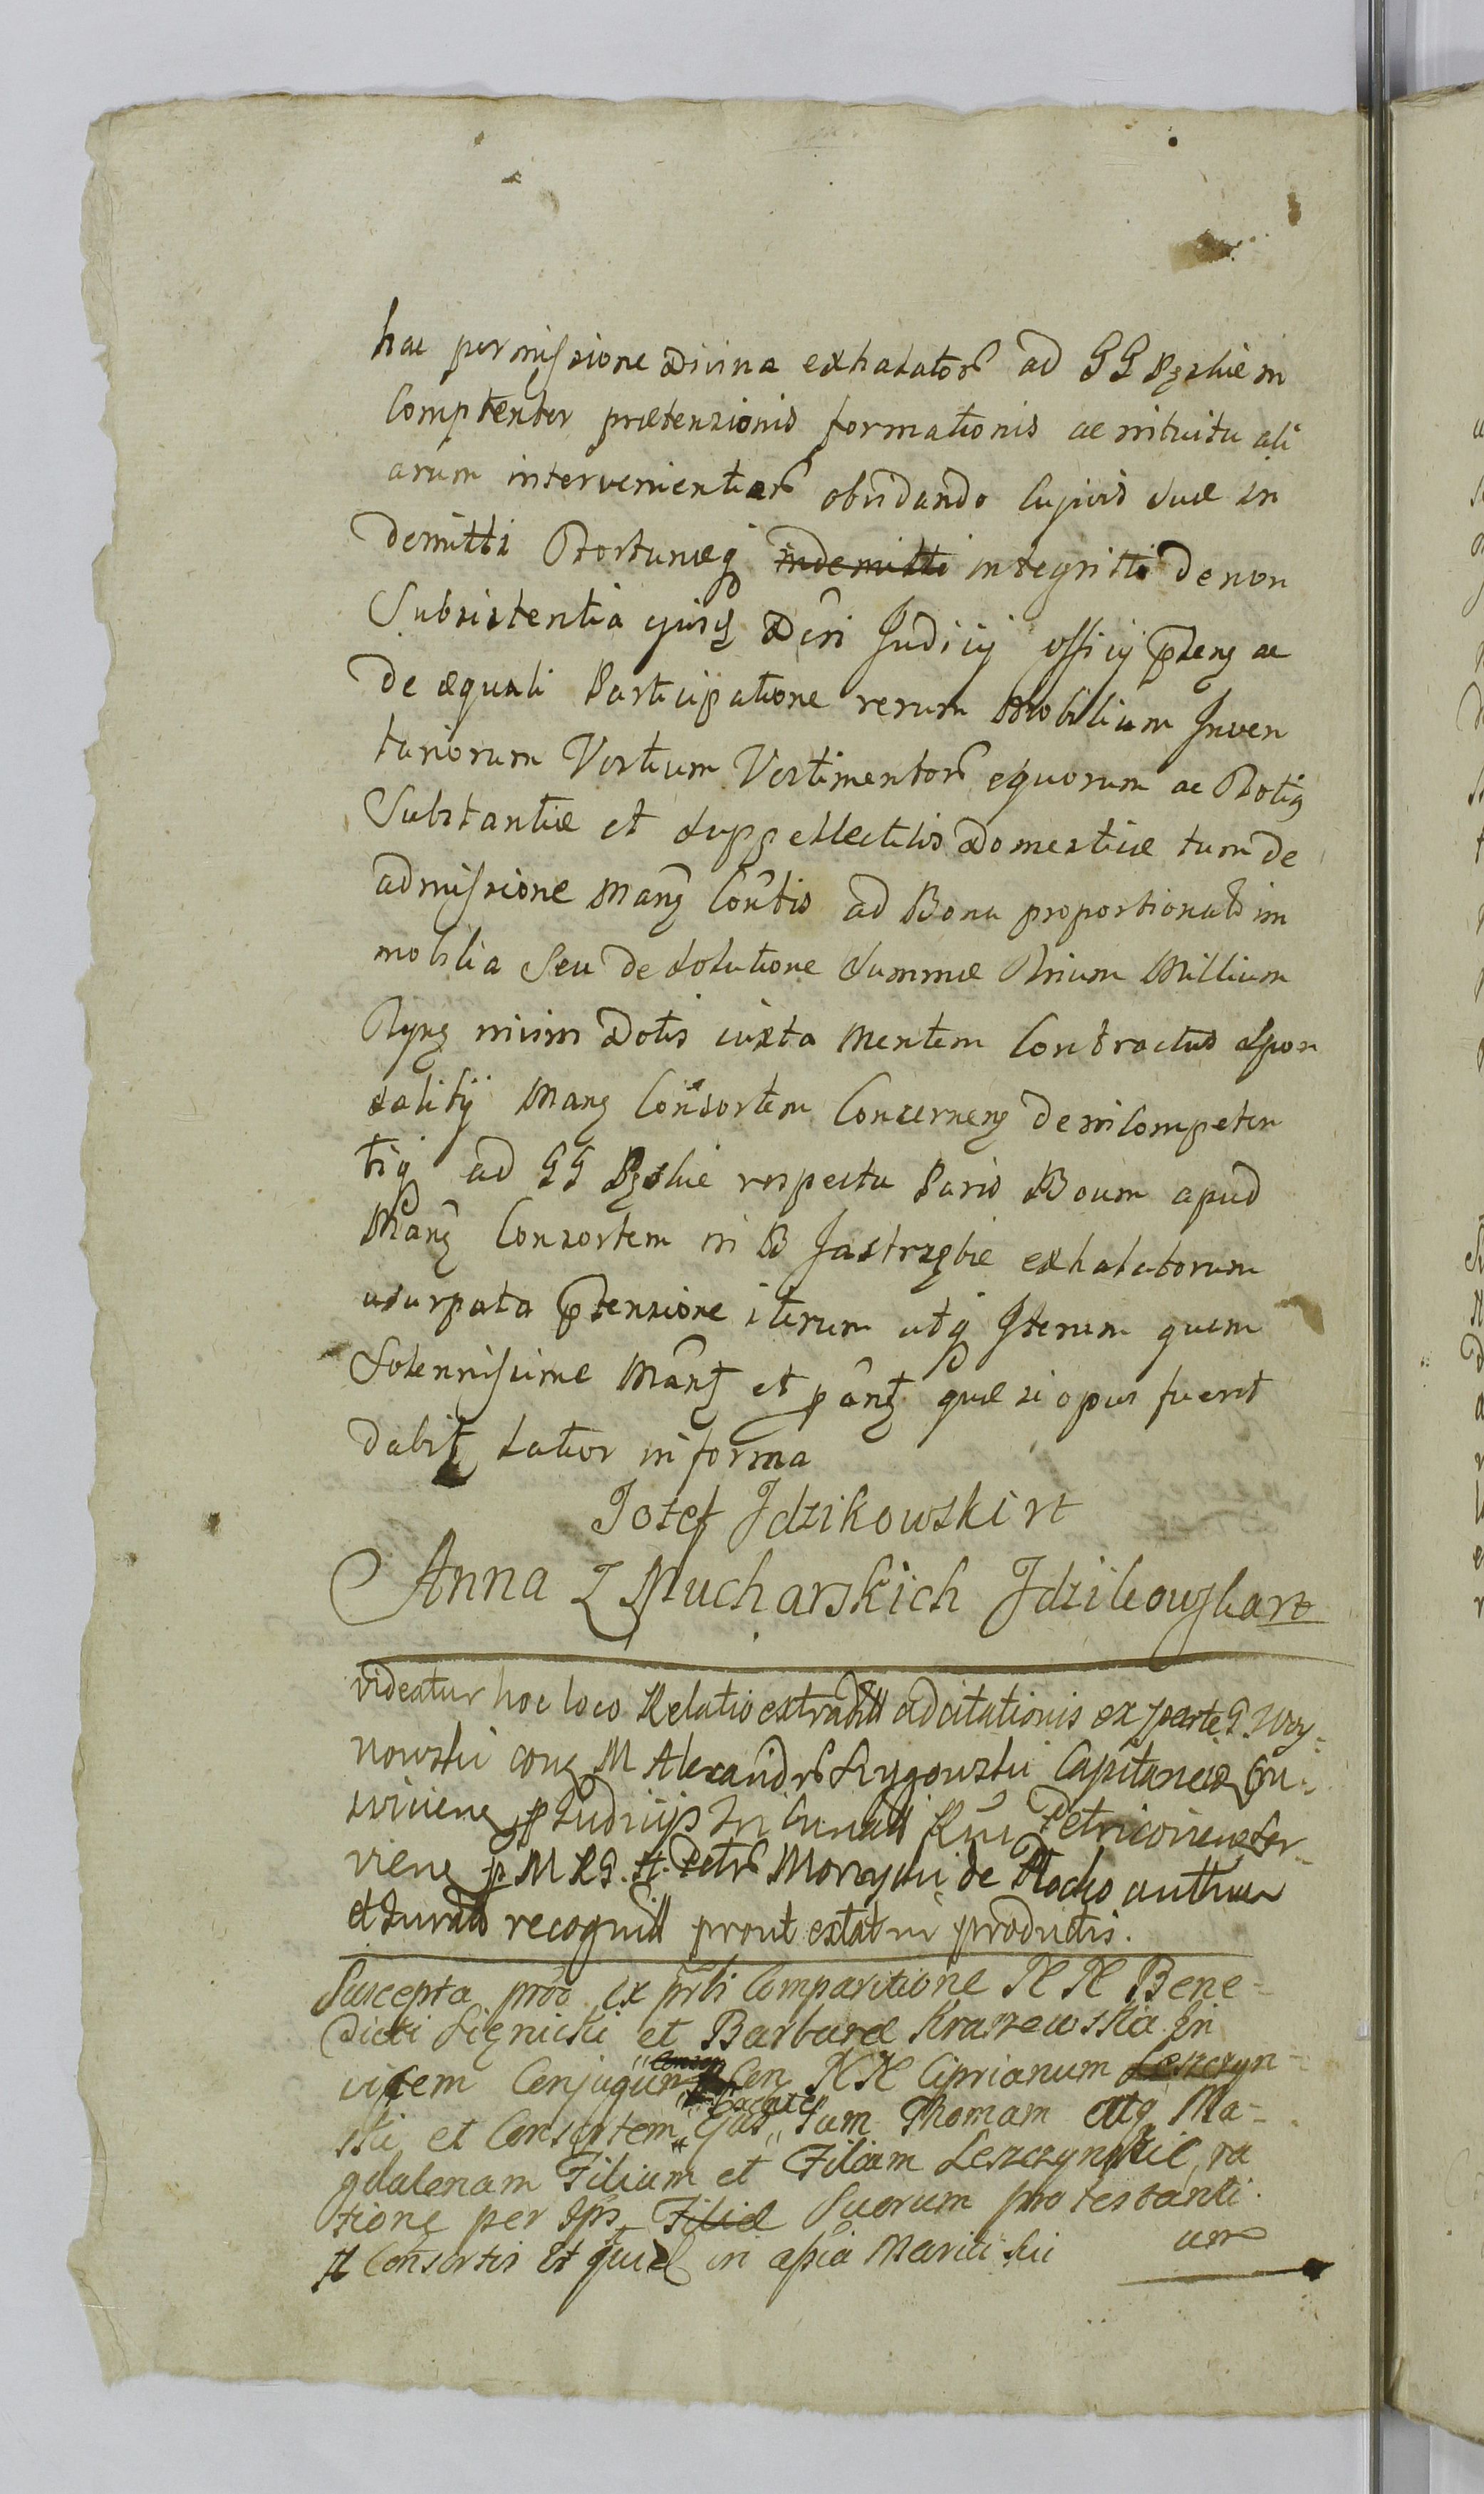 hac permissione Divina exhalator ad GG Bzskie in
Comptenter prætensionis formationis ac intuitu ali
arum intervenientiar obvidando cujuis suæ in
demitti Fortunæq indemitti integritti de non
Subsistentia ejusd Dni Judicij officij ptens ac
De æquali Participatione rerum Mobilium Inven
tariorum Vestium Vestimentor equorum ac Totiq
Substantiæ et suppellectilis Domesticæ tum de
admissione Mang Contis ad Bona proportionato im
mobilia Seu de solutione summæ Trium Millium
Tynf nivim Dotis iuxta mentem Contractus spon
salitij Mang Consortem Concerneng de incompeten
tiq ad GG Bzskie respectu Paris Boum apud
Mang Consortem in B Jastrzębie exhalatorum
usurpata ptensione iterum atq Iterum quam
Solennissime Mang et pang quæ si opus fuerit
dabit latior in forma
Jozef Idzikowski rt
Anna Z Mucharskich Idzikowska rt
videatur hoc loco Relatio extradill adcitationis ex parte G. Woy-
nowski cong M Alexandro Lugowski Capitaneo
Judicijs Tribunall Petricoviens ser-
viens p M R G. St. Petro Morzycki de Plocko
et Jurato recognitt prout extat in productis.
Suscepta proo ex prti Comparitione N N Bene-
dicti Signicki et Barbaræ Kraszewska In
vicem Conjugum Con N N Ciprianum Leszczyn-
ski et Consortem Ejus tam Thomam atq Ma-
gdalenam Filium et Filiam Leszczynskie ra
tione per Ips Filiæ Suorum protestanti
Consortis Et quiel in asia Mariti sui um